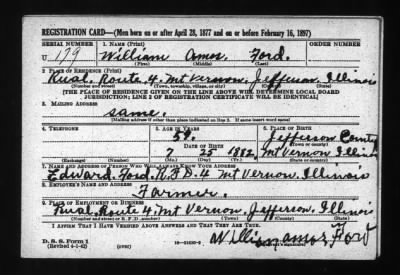 REGISTRATION CARD—(Men born on or after April 28, 1877 and on or before February 16, 1897)
SERIAL NUMBER 1. NAME (Print) ORDER NUMBER
U 179 William Amos Ford.
(First) (Middle) (Last)
2. PLACE OF RESIDENCE (Print)
Rural Route 4. Mt Vernon, Jefferson, Illinois
(Number and street) (Town, township, village, or city) (County) (State)
[THE PLACE OF RESIDENCE GIVEN ON THE LINE ABOVE WILL DETERMINE LOCAL BOARD
JURISDICTION; LINE 2 OF REGISTRATION CERTIFICATE WILL BE IDENTICAL]
3. MAILING ADDRESS
same.
(Mailing address if other than place indicated on line 2. If same insert word same)
4. TELEPHONE 5. AGE IN YEARS 6. PLACE OF BIRTH
Jefferson County
DATE OF BIRTH (Town or county)
7 25 1882 Mt Vernon Illinois
(Exchange) (Number) (Mo.) (Day) (Yr.) (State or country)
7. NAME AND ADDRESS OF PERSON WHO WILL ALWAYS KNOW YOUR ADDRESS
Edward Ford R.F.D. 4 Mt Vernon, Illinois
8. EMPLOYER'S NAME AND ADDRESS
Farmer.
9. PLACE OF EMPLOYMENT OR BUSINESS
Rural Route 4. Mt Vernon, Jefferson, Illinois
(Number and street or R. F. D. number) (Town) (County) (State)
I AFFIRM THAT I HAVE VERIFIED ABOVE ANSWERS AND THAT THEY ARE TRUE.
D. S. S. Form 1
(Revised 4-1-42) (over) William amos Ford